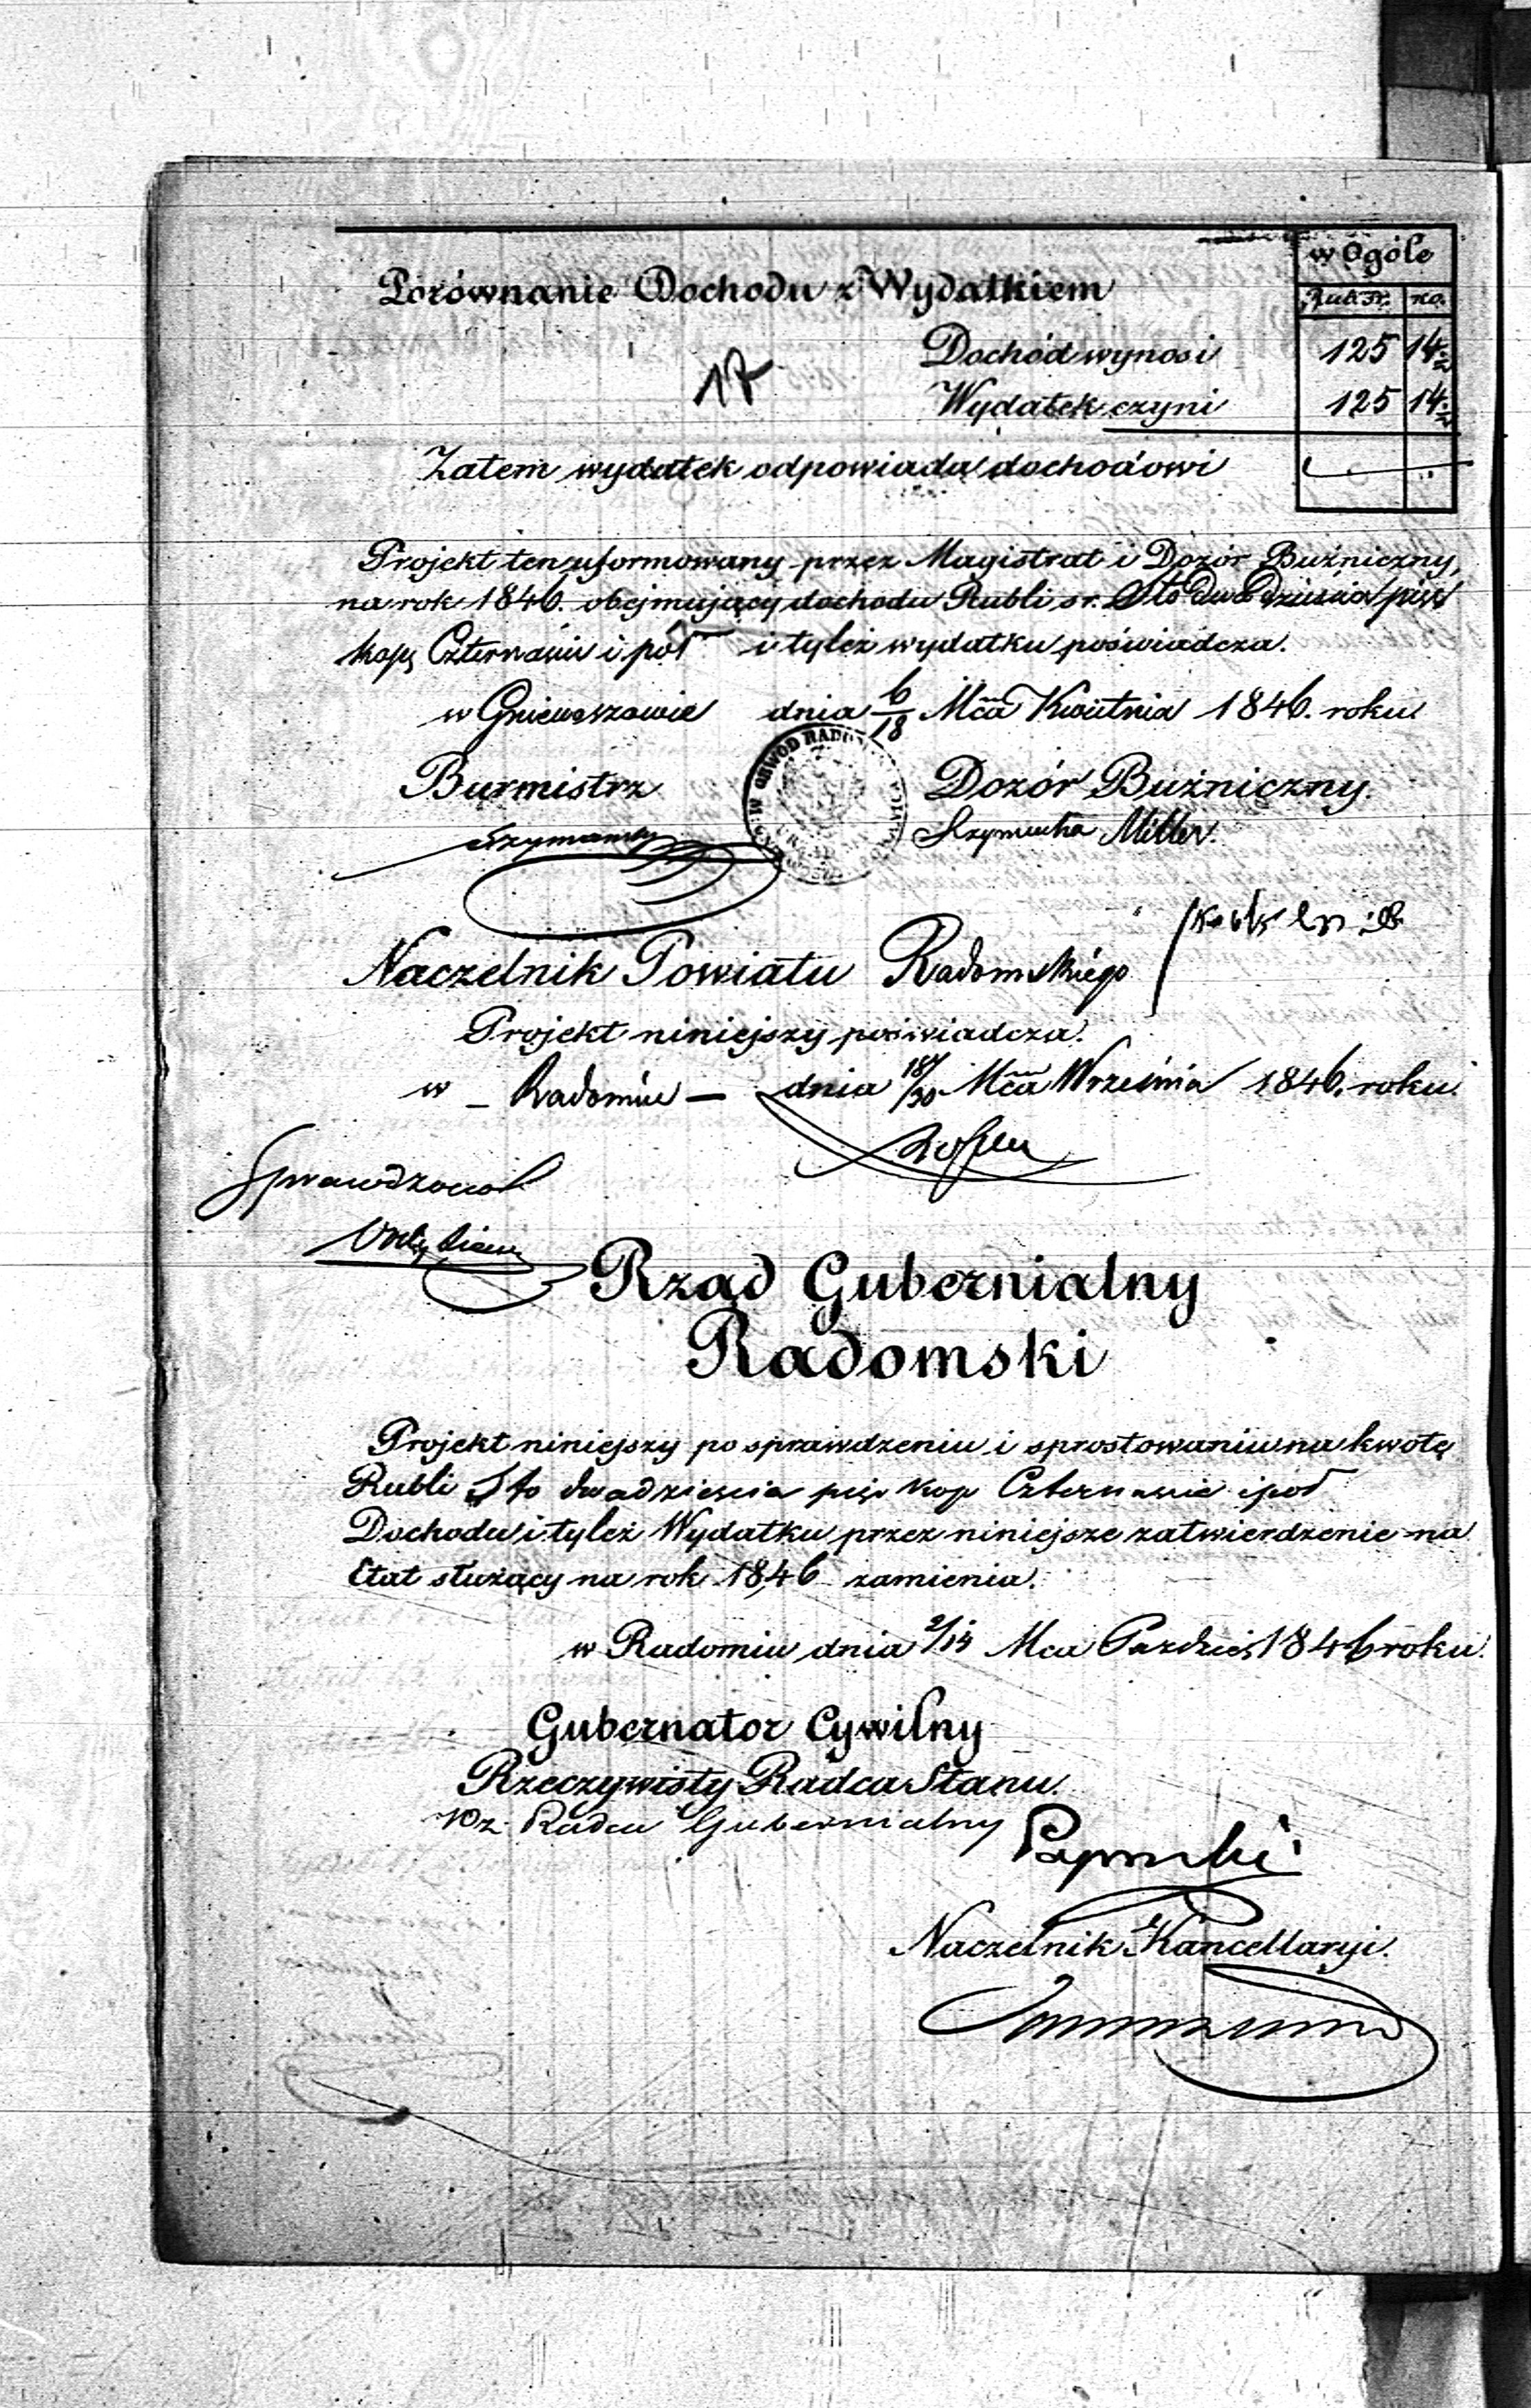 w Ogóle
Porównanie Dochodu z Wydatkiem
Rub. sr. ko.
Dochód wynosi 125 14½
17
Wydatek czyni 125 14½
Zatem wydatek odpowiada dochodowi
Projekt ten uformowany przez Magistrat i Dozór Buźniczny,
na rok 1846. obejmujący dochodu Rubli sr. Sto dwadzieścia pięć
kop. Czternaście i pół i tyleż wydatku poświadcza.
w Gniewoszowie dnia 6/18 Mca Kwietnia 1846. roku.
Burmistrz Dozór Buźniczny.
Szymański Szymcha Miller.
Naczelnik Powiatu Radomskiego
Projekt niniejszy poświadcza.
w Radomiu dnia 18/30 Mca Września 1846. roku.
Sprawdzono
Rząd Gubernialny
Radomski
Projekt niniejszy po sprawdzeniu i sprostowaniu na kwotę
Rubli Sto dwadzieścia pięć kop Czternaście i pół
Dochodu i tyleż Wydatku przez niniejsze zatwierdzenie na
Etat służący na rok 1846 zamienia.
w Radomiu dnia 2/14 Mca Paździer. 1846 roku.
Gubernator Cywilny
Rzeczywisty Radca Stanu.
Wz. Radca Gubernialny
Naczelnik Kancellaryi.